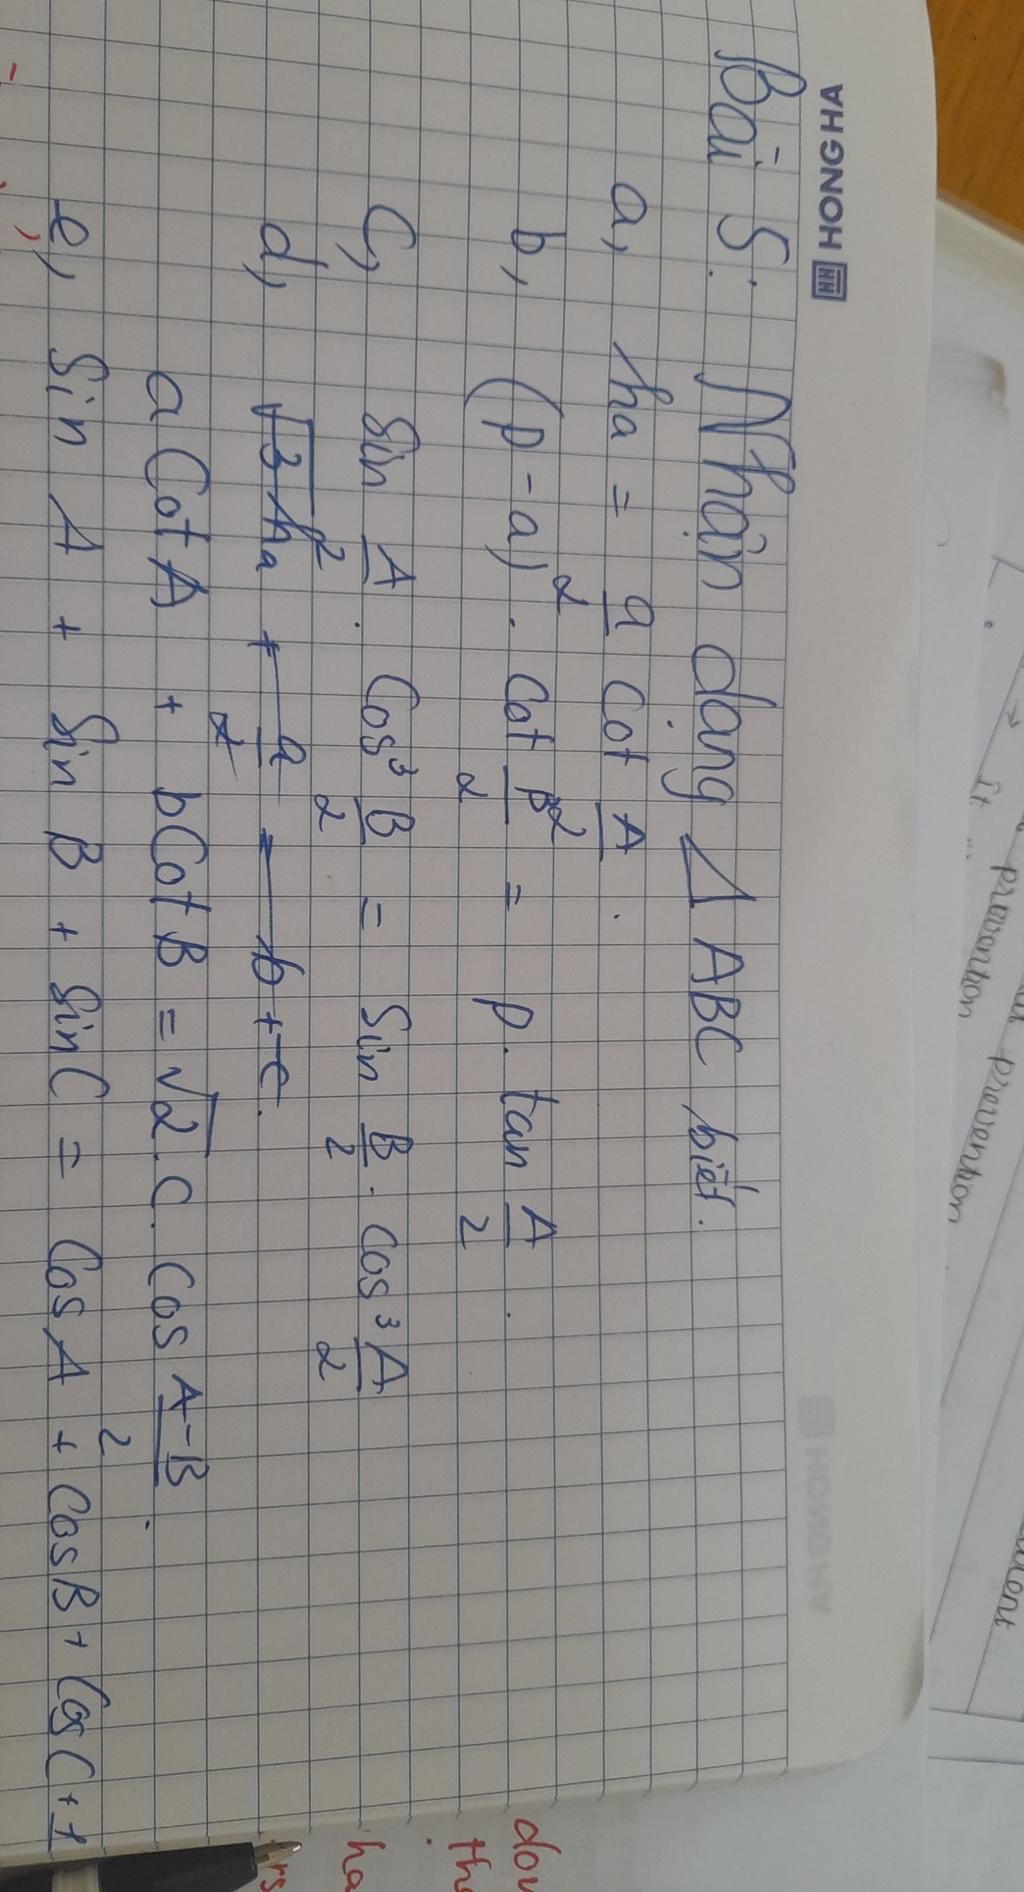 HONG HA
Bài 5: Nhận dạng Δ ABC biết.
a, ha = a/2 cot A/2.
b, (p-a). cot B/2 = p. tan A/2.
c, Sin A/2. Cos³ B/2 = Sin B/2. Cos³ A/2
d, √3 ha + a/2 = b + c.
a Cot A + b Cot B = √2. C. Cos A-B/2.
e, Sin A + Sin B + Sin C = Cos A + Cos B + Cos C + 1
prevention
prevention
it